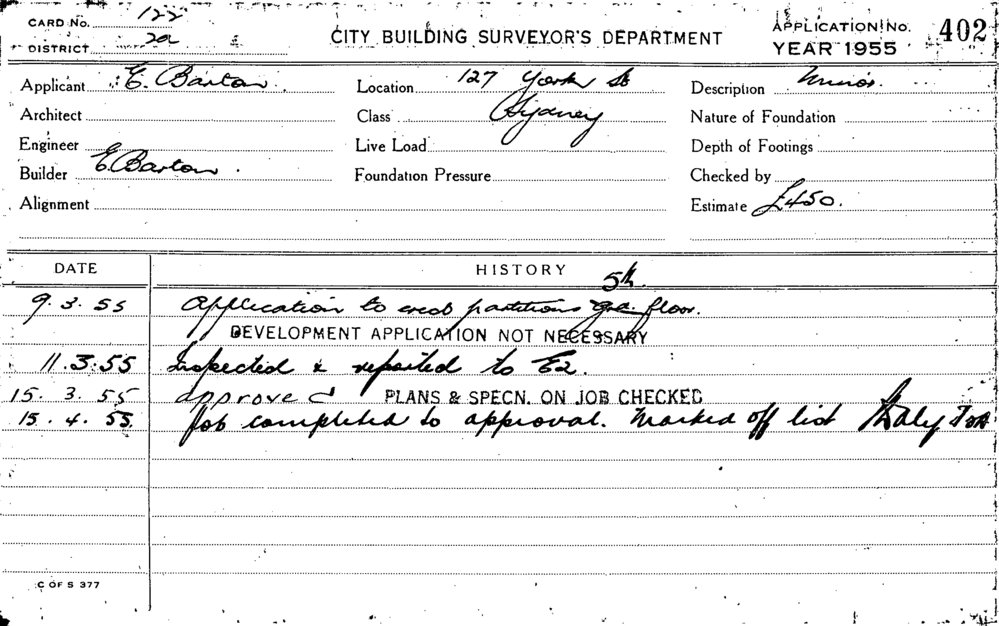 CARD No. 122
DISTRICT 2a
CITY BUILDING SURVEYOR'S DEPARTMENT
APPLICATION No. 402
YEAR 1955
Applicant E. Barton
Location 127 York St
Description Minor
Architect
Class Sydney
Nature of Foundation
Engineer
Live Load
Depth of Footings
Builder E. Barton
Foundation Pressure
Checked by
Alignment
Estimate £450.
DATE HISTORY
9.3.55 Application to erect partitions 5th floor.
DEVELOPMENT APPLICATION NOT NECESSARY
11.3.55 Inspected & reported to E2.
15.3.55 approved PLANS & SPECN. ON JOB CHECKED
15.4.55. Job completed to approval. Marked off list Daly
C OF S 377